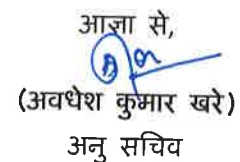 आज्ञा से,
(अवधेश कुमार खरे)
अनु सचिव